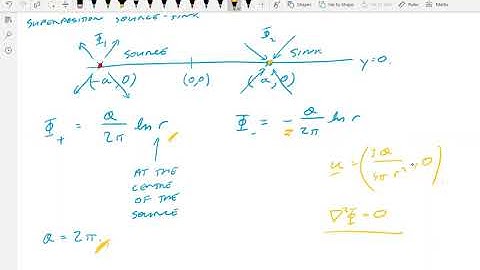 Shapes
Ink to Shape
Ink to Text
Maths
SUPERPOSITION SOURCE-SINK
Φ₁ SOURCE Φ₂ SINK
y=0.
(-a, 0) (0,0) (a, 0)
Φ₊ = Q/2π ln r Φ₋ = - Q/2π ln r
AT THE
CENTRE
OF THE
SOURCE
∇²Φ = 0
Q = 2π.